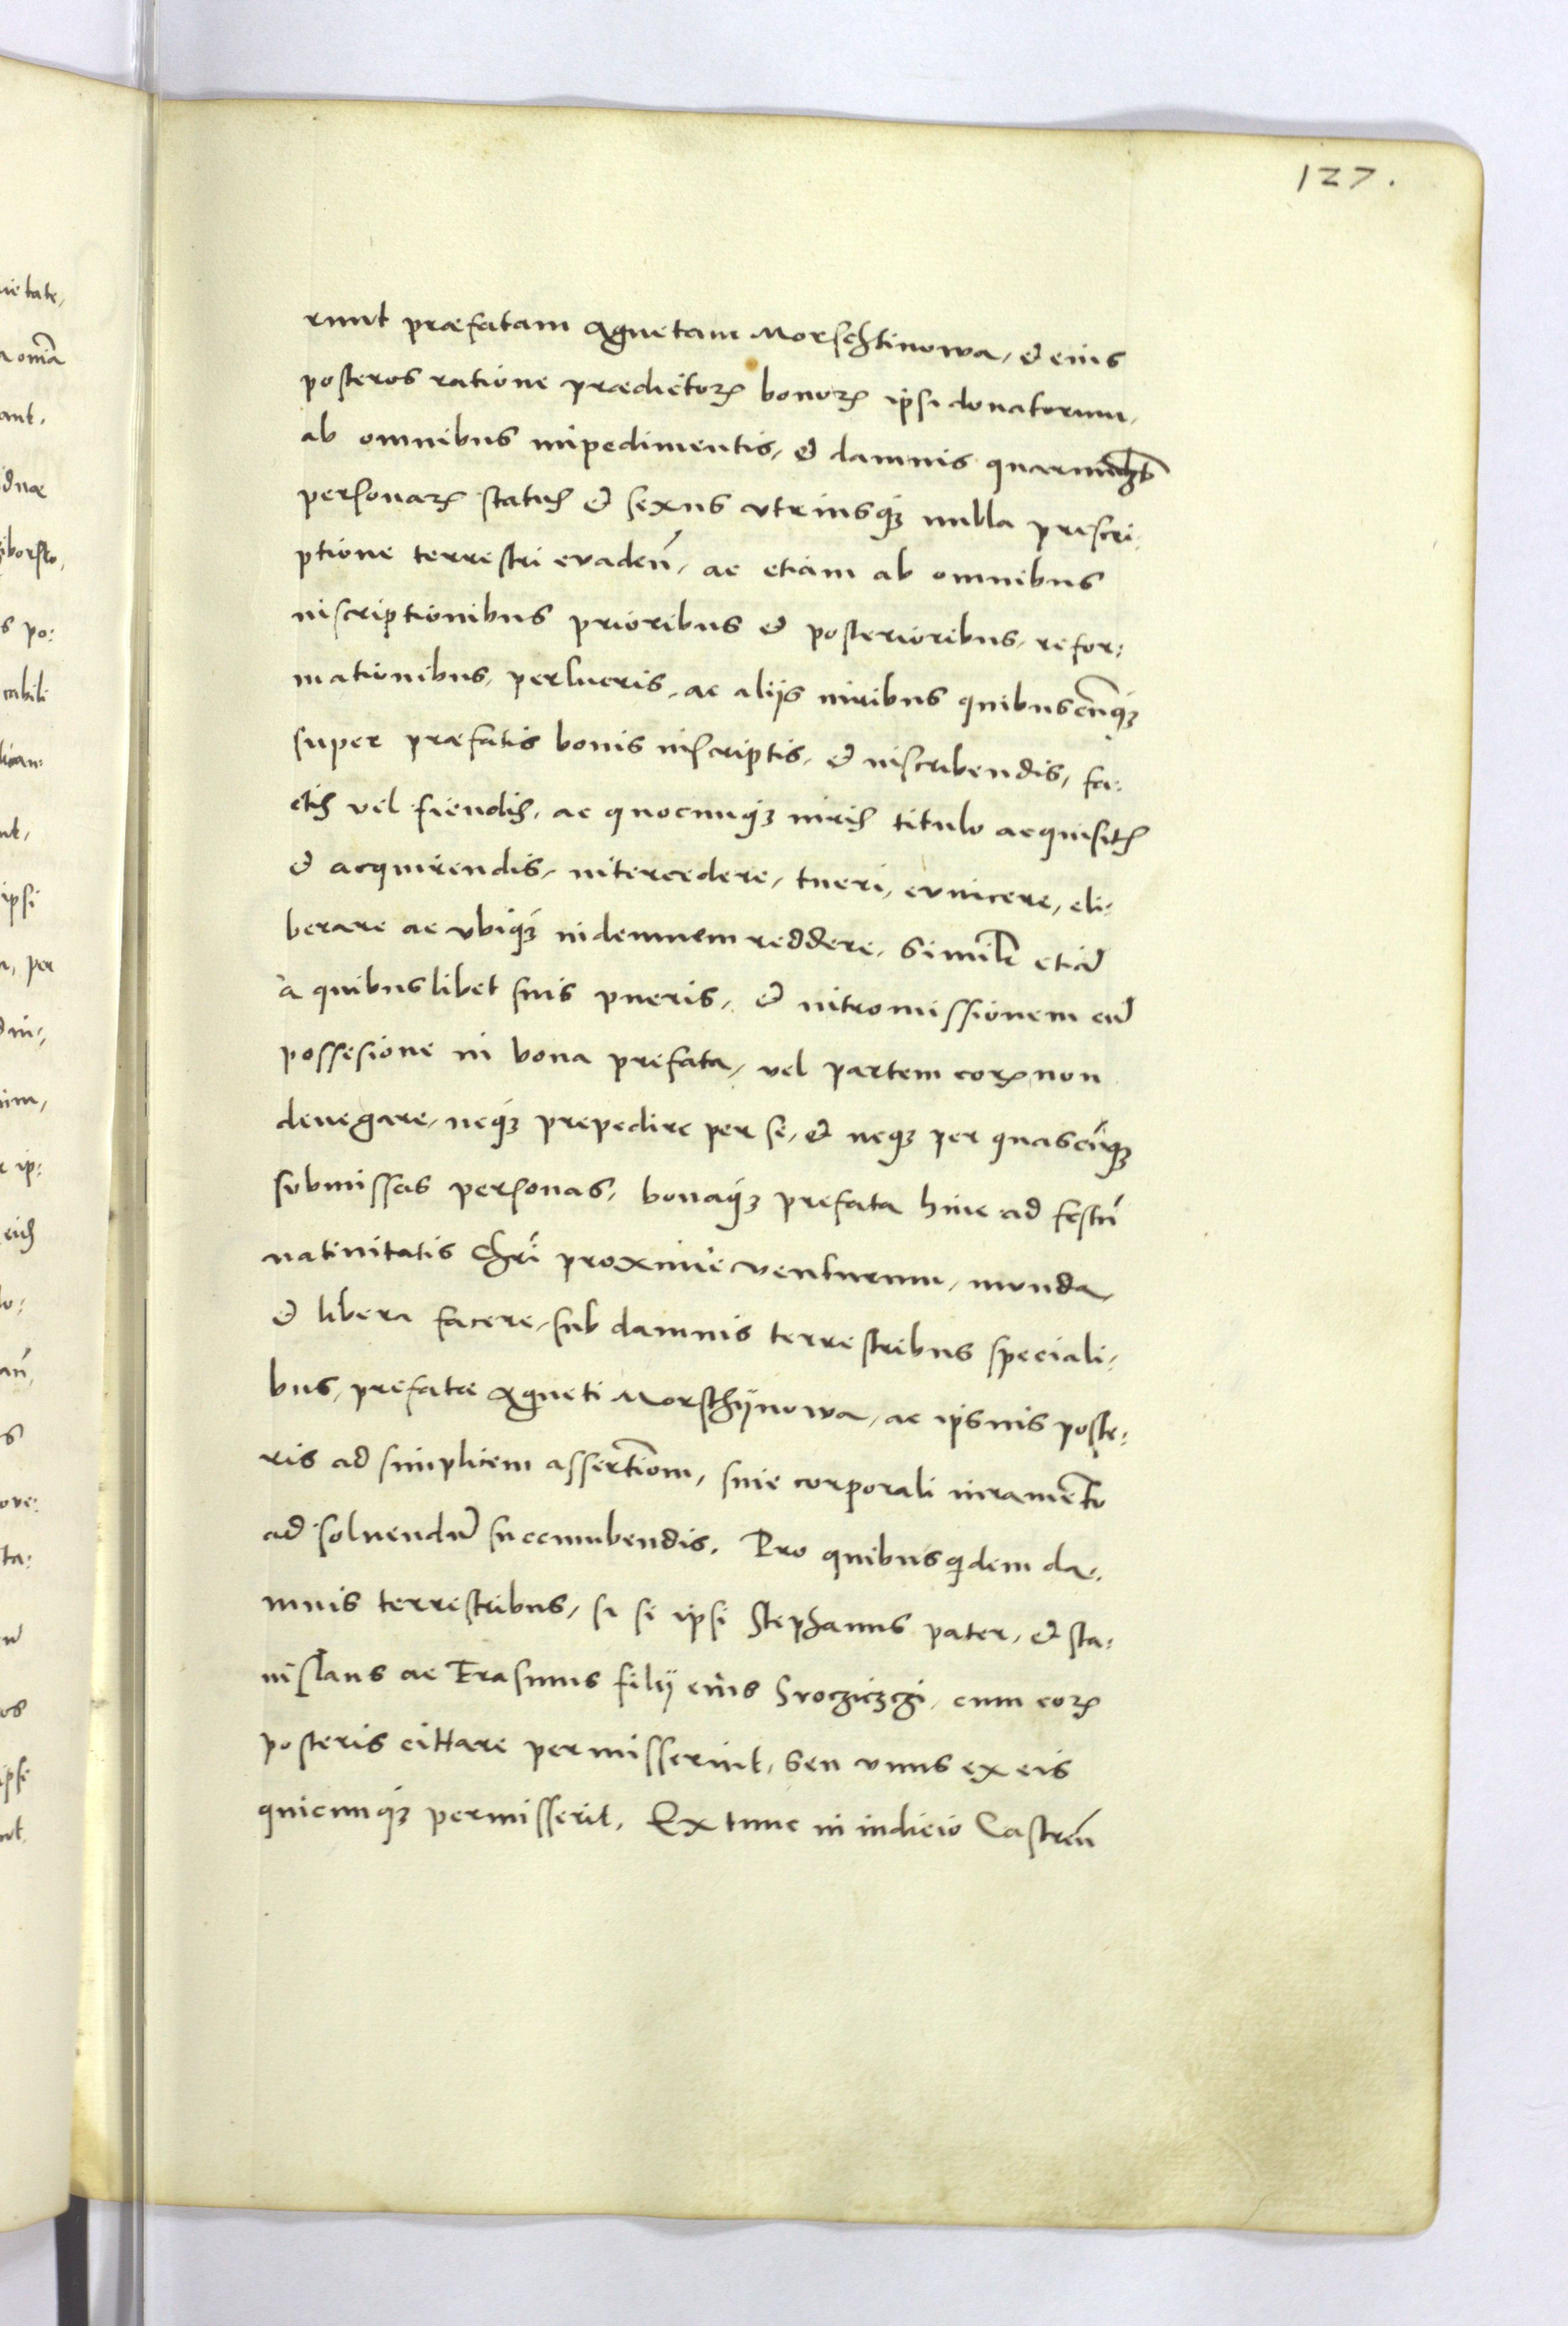 127.
runt præfatam Agnetam Morschtinowa, et eius
posteros ratione prædictorꝝ bonorꝝ ipsi donatorum,
ab omnibus impedimentis, et damnis
personarꝝ status et sexus vtriusqꝫ nulla prescri-
ptione terrestri evadeñ, ac etiam ab omnibus
inscriptionibus prioribus et posterioribus, refor:
mationibus, perlucris, ac alijs iuribus quibuscūqꝫ
super præfatis bonis inscriptis, et inscribendis, fa:
ctis vel fiendis, ac quocunqꝫ iuris titulo acquisitis
et acquirendis, intercedere, tueri, evincere, eli:
berare ac vbiqꝫ indemnem reddere, Similr etiā
à quibuslibet suis pueris, et intromissionem cū
possesione in bona prefata, vel partem eorꝝ non
denegare, neqꝫ prepedire per se, et neqꝫ per quascūqꝫ
submissas personas, bonaqꝫ prefata hinc ad festū
natiuitatis Chrī proxime venturum, munda,
et libera facere, sub damnis terrestribus speciali-
bus, prefatæ Agneti Morsthÿnowa, ac ipsius poste:
ris ad simplicem assertiom, sine corporali iuramento
ad soluendū succumbendis. Pro quibus qidem da-
mnis terrestribus, si se ipsi Stephanus pater, et sta:
nislaus ac Erasmus filij eius Srocziczgi, cum eorꝝ
posteris cittare permisserint, seu vnus ex eis
quicunqꝫ permisserit, Ex tunc in iudicio Castreñ
ietate,
a om̄ia
ant.
iduæ
s po:
cabili
ipsi
a, per
r ip: